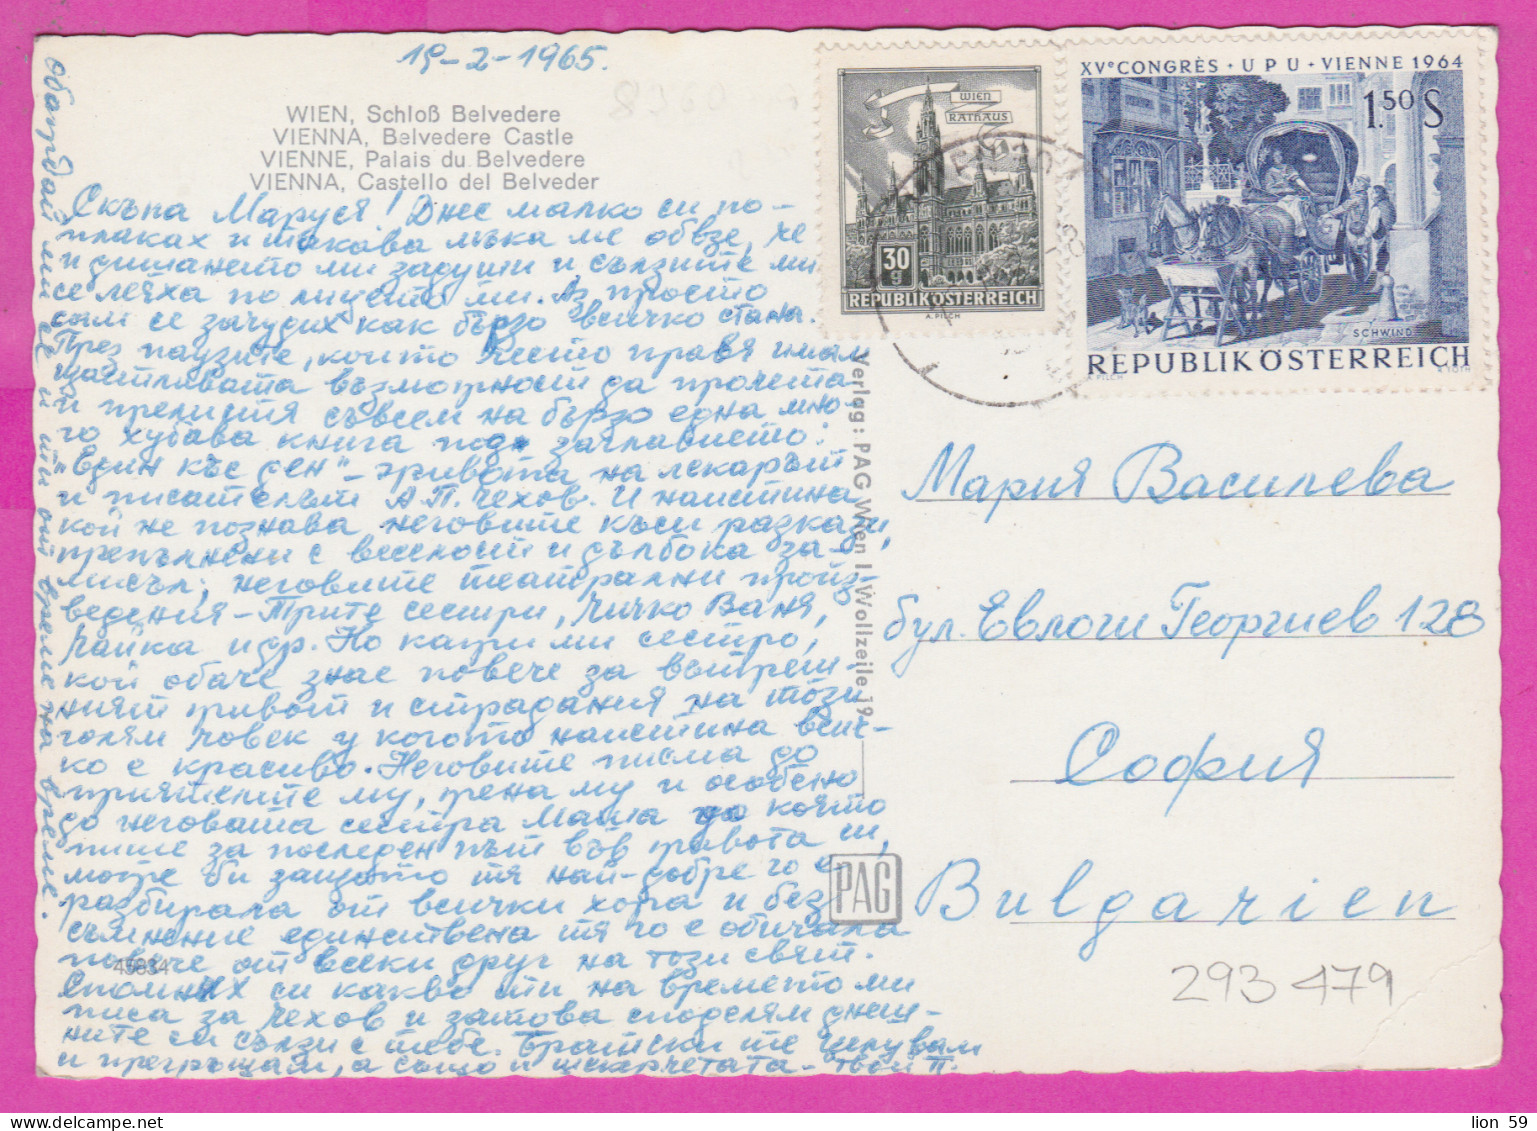 19-2-1965.
WIEN, Schloß Belvedere
VIENNA, Belvedere Castle
VIENNE, Palais du Belvedere
VIENNA, Castello del Belveder
Скъпа Маруся! Днес малко си по-
плаках и такава мъка ме обзе, че
и дишането ми задуши и сълзите ми
се леяха по лицето ми. Аз просто
сам се зачудих как бързо всичко стана.
През паузите, които често правя имам
щастливата възможност да прочета
и прелистя съвсем на бързо една мно-
го хубава книга под заглавието:
"Един къс ден" - живота на лекарят
и писателят А.П. Чехов. И наистина
кой не познава неговите къси разкази,
препълнени с веселост и дълбока за-
мисъл; неговите театрални произ-
ведения - Трите сестри, Чичко Ваня,
Чайка и др. Но кажи ми сестро,
кой обаче знае повече за вътреш-
ният живот и страдания на този
голям човек у когото наистина всич-
ко е красиво. Неговите писма до
приятелите му, жена му и особено
до неговата сестра Маша до която
пише за последен път във живота си,
може би защото тя най-добре го е
разбирала от всички хора и без
съмнение единствена тя го е обичала
повече от всеки друг на този свят.
Спомних си какво ти на времето ми
писа за Чехов и затова споделям днеш-
ните си сълзи с тебе. Братски те целувам
и прегръщам, а също и щерчетата - твой П.
обаждай ми се и ти от време на време.
45834
Verlag: PAG Wien I Wollzeile 19
PAG
WIEN
RATHAUS
30 g
REPUBLIK ÖSTERREICH
A. PILCH
XVe CONGRÈS · UPU · VIENNE 1964
1.50 S
SCHWIND
REPUBLIK ÖSTERREICH
A. PILCH
Мария Василева
бул. Евлоги Георгиев 128
София
Bulgarien
293479
lion 59